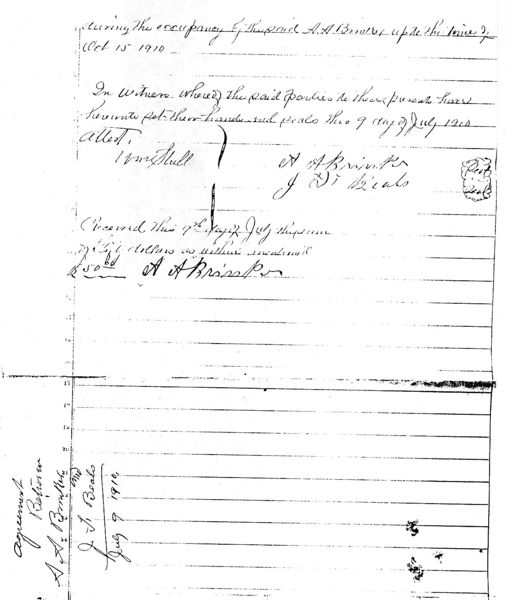 during the occupancy of the said A. A. Brinker up to the time of
Oct 15 1910
In Witness whereof the said parties to these presents have
hereunto set their hands and seals this 9 day of July 1910
Attest.
Wm Stull
A A Brinker
J. F. Beals
Received this 9th day of July the sum
of dollars as within mentioned
$50 00 A A Brinker
agreement
Between
A. A. Brinker
and
J. F. Beals
July 9 1910